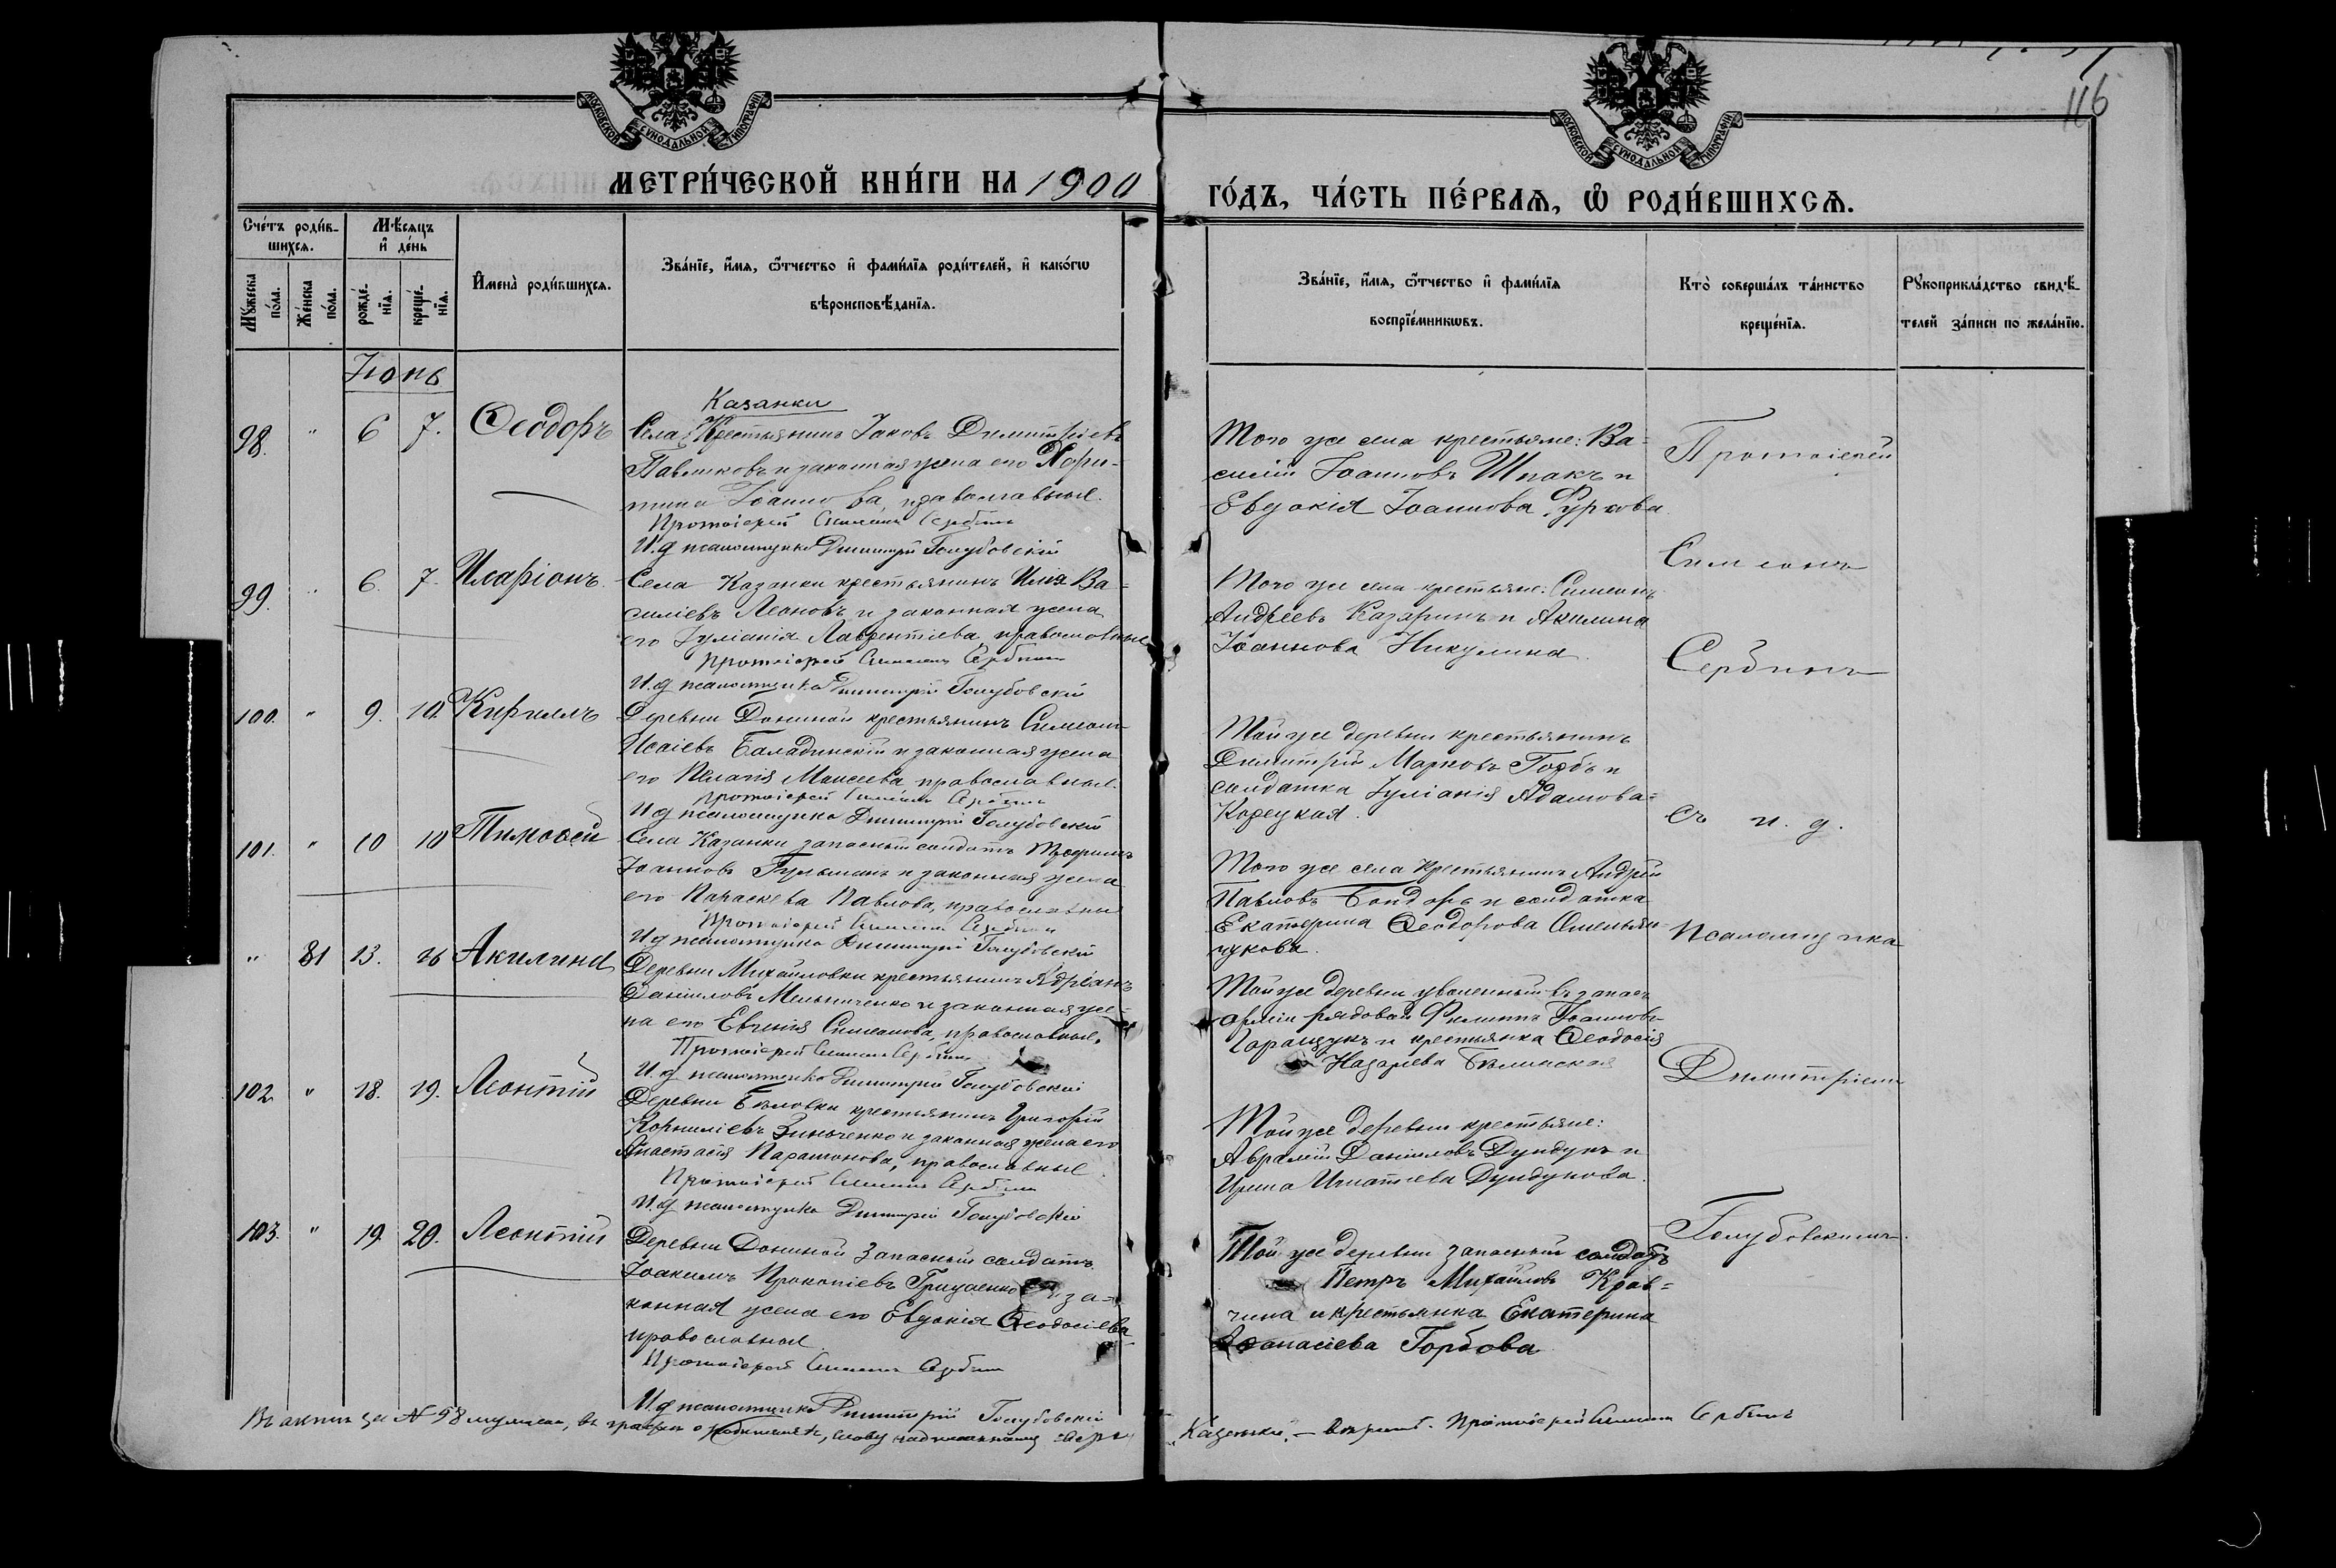 116
МОСКОВСКОЙ СУНОДАЛЬНОЙ ТИПОГРАФІИ
МОСКОВСКОЙ СУНОДАЛЬНОЙ ТИПОГРАФІИ
МЕТРИ́ЧЕСКОЙ КНИ́ГИ НА 1900
ГО́ДЪ, ЧА́СТЬ ПЕ́РВАѦ, Ѡ҆ РОДИ́ВШИХСѦ.
Сче́тъ роди́в-
шихсѧ.
Мꙋ́жеска
по́ла.
Же́нска
по́ла.
Мѣ́сѧцъ
и҆ де́нь
рожде́-
нїѧ.
креще́-
нїѧ.
И҆мена̀ роди́вшихсѧ.
Зва́нїе, и҆́мѧ, ѻ҆́тчество и҆ фами́лїѧ роди́телей, и҆ како́гѡ
вѣроисповѣ́данїѧ.
Зва́нїе, и҆́мѧ, ѻ҆́тчество и҆ фами́лїѧ
воспрїе́мникѡвъ.
Кто̀ соверша́лъ та́инство
креще́нїѧ.
Рꙋкоприкла́дство свидѣ́-
телей за́писи по жела́нїю.
Іюнь
98. " 6 7. Ѳеодоръ
Казанки
Села Крестьянинъ Іаковъ Димитріевъ
Павлюковъ и законная жена его Хари-
тина Іоаннова, православные.
Протоіерей Симеонъ Сербинъ
И.д псаломщика Димитрій Голубовскій
Того же села крестьяне: Ва-
силій Іоанновъ Шпакъ и
Евдокія Іоаннова Фурсова
Протоіерей
Симеонъ
Сербинъ
съ и. д.
Псаломщика
Димитріемъ
Голубовскимъ.
99. " 6. 7. Иларіонъ
Села Казанки крестьянинъ Илія Ва-
силіевъ Леоновъ и законная жена
его Іуліанія Лаврентіева, православные
Протоіерей Симеонъ Сербинъ
И.д псаломщика Димитрій Голубовскій
Того же села крестьяне: Симеонъ
Андреевъ Казаринъ и Акилина
Іоаннова Никулина.
100. " 9. 10. Кириллъ
Деревни Дониной крестьянинъ Симеонъ
Исаіевъ Баладинскій и законная жена
его Пелагія Моисеева, православные.
Протоіерей Симеонъ Сербинъ
И.д псаломщика Димитрій Голубовскій
Той же деревни крестьянинъ
Димитрій Марковъ Горбъ и
солдатка Іуліанія Адамова
Корецкая.
101. " 10 10 Тимоѳей
Села Казанки запасный солдатъ
Іоанновъ и законная жена
его Параскева Павлова, православные
Протоіерей Симеонъ Сербинъ
И.д псаломщика Димитрій Голубовскій
Того же села крестьянинъ Андрей
Павловъ Бондарь и солдатка
Екатерина Ѳеодорова Омельян-
чукова.
" 81 13. 16 Акилина
Деревни Михайловки крестьянинъ Адріанъ
Даніиловъ Мельниченко и законная же-
на его Евгенія Симеонова, православные.
Протоіерей Симеонъ Сербинъ
И.д псаломщика Димитрій Голубовскій
Той же деревни уволенный въ запасъ
арміи рядовой Филиппъ Іоанновъ
Гаращукъ и крестьянка Ѳеодосія
Назарева Бѣлинская
102 " 18. 19. Леонтій
Деревни Бѣловки крестьянинъ Григорій
Корниліевъ Зинченко и законная жена его
Анастасія Парамонова, православные.
Протоіерей Симеонъ Сербинъ
И.д псаломщика Димитрій Голубовскій
Той же деревни крестьяне:
Аврамій Даніиловъ Дундукъ и
Ирина Игнатіева Дундукова.
103. " 19. 20. Леонтій
Деревни Дониной Запасный солдатъ
Іоакимъ Прокопіевъ Гриценко и за-
конная жена его Евдокія Ѳеодосіева
православные
Протоіерей Симеонъ Сербинъ
И.д псаломщика Димитрій Голубовскій
Той же деревни запасный солдатъ
Петръ Михайловъ Крав-
чина и крестьянка Екатерина
Аѳанасіева Горбова
Въ актѣ за № 98 въ графѣ о слову
"Казанки" — вѣрить. Протоіерей Симеонъ Сербинъ